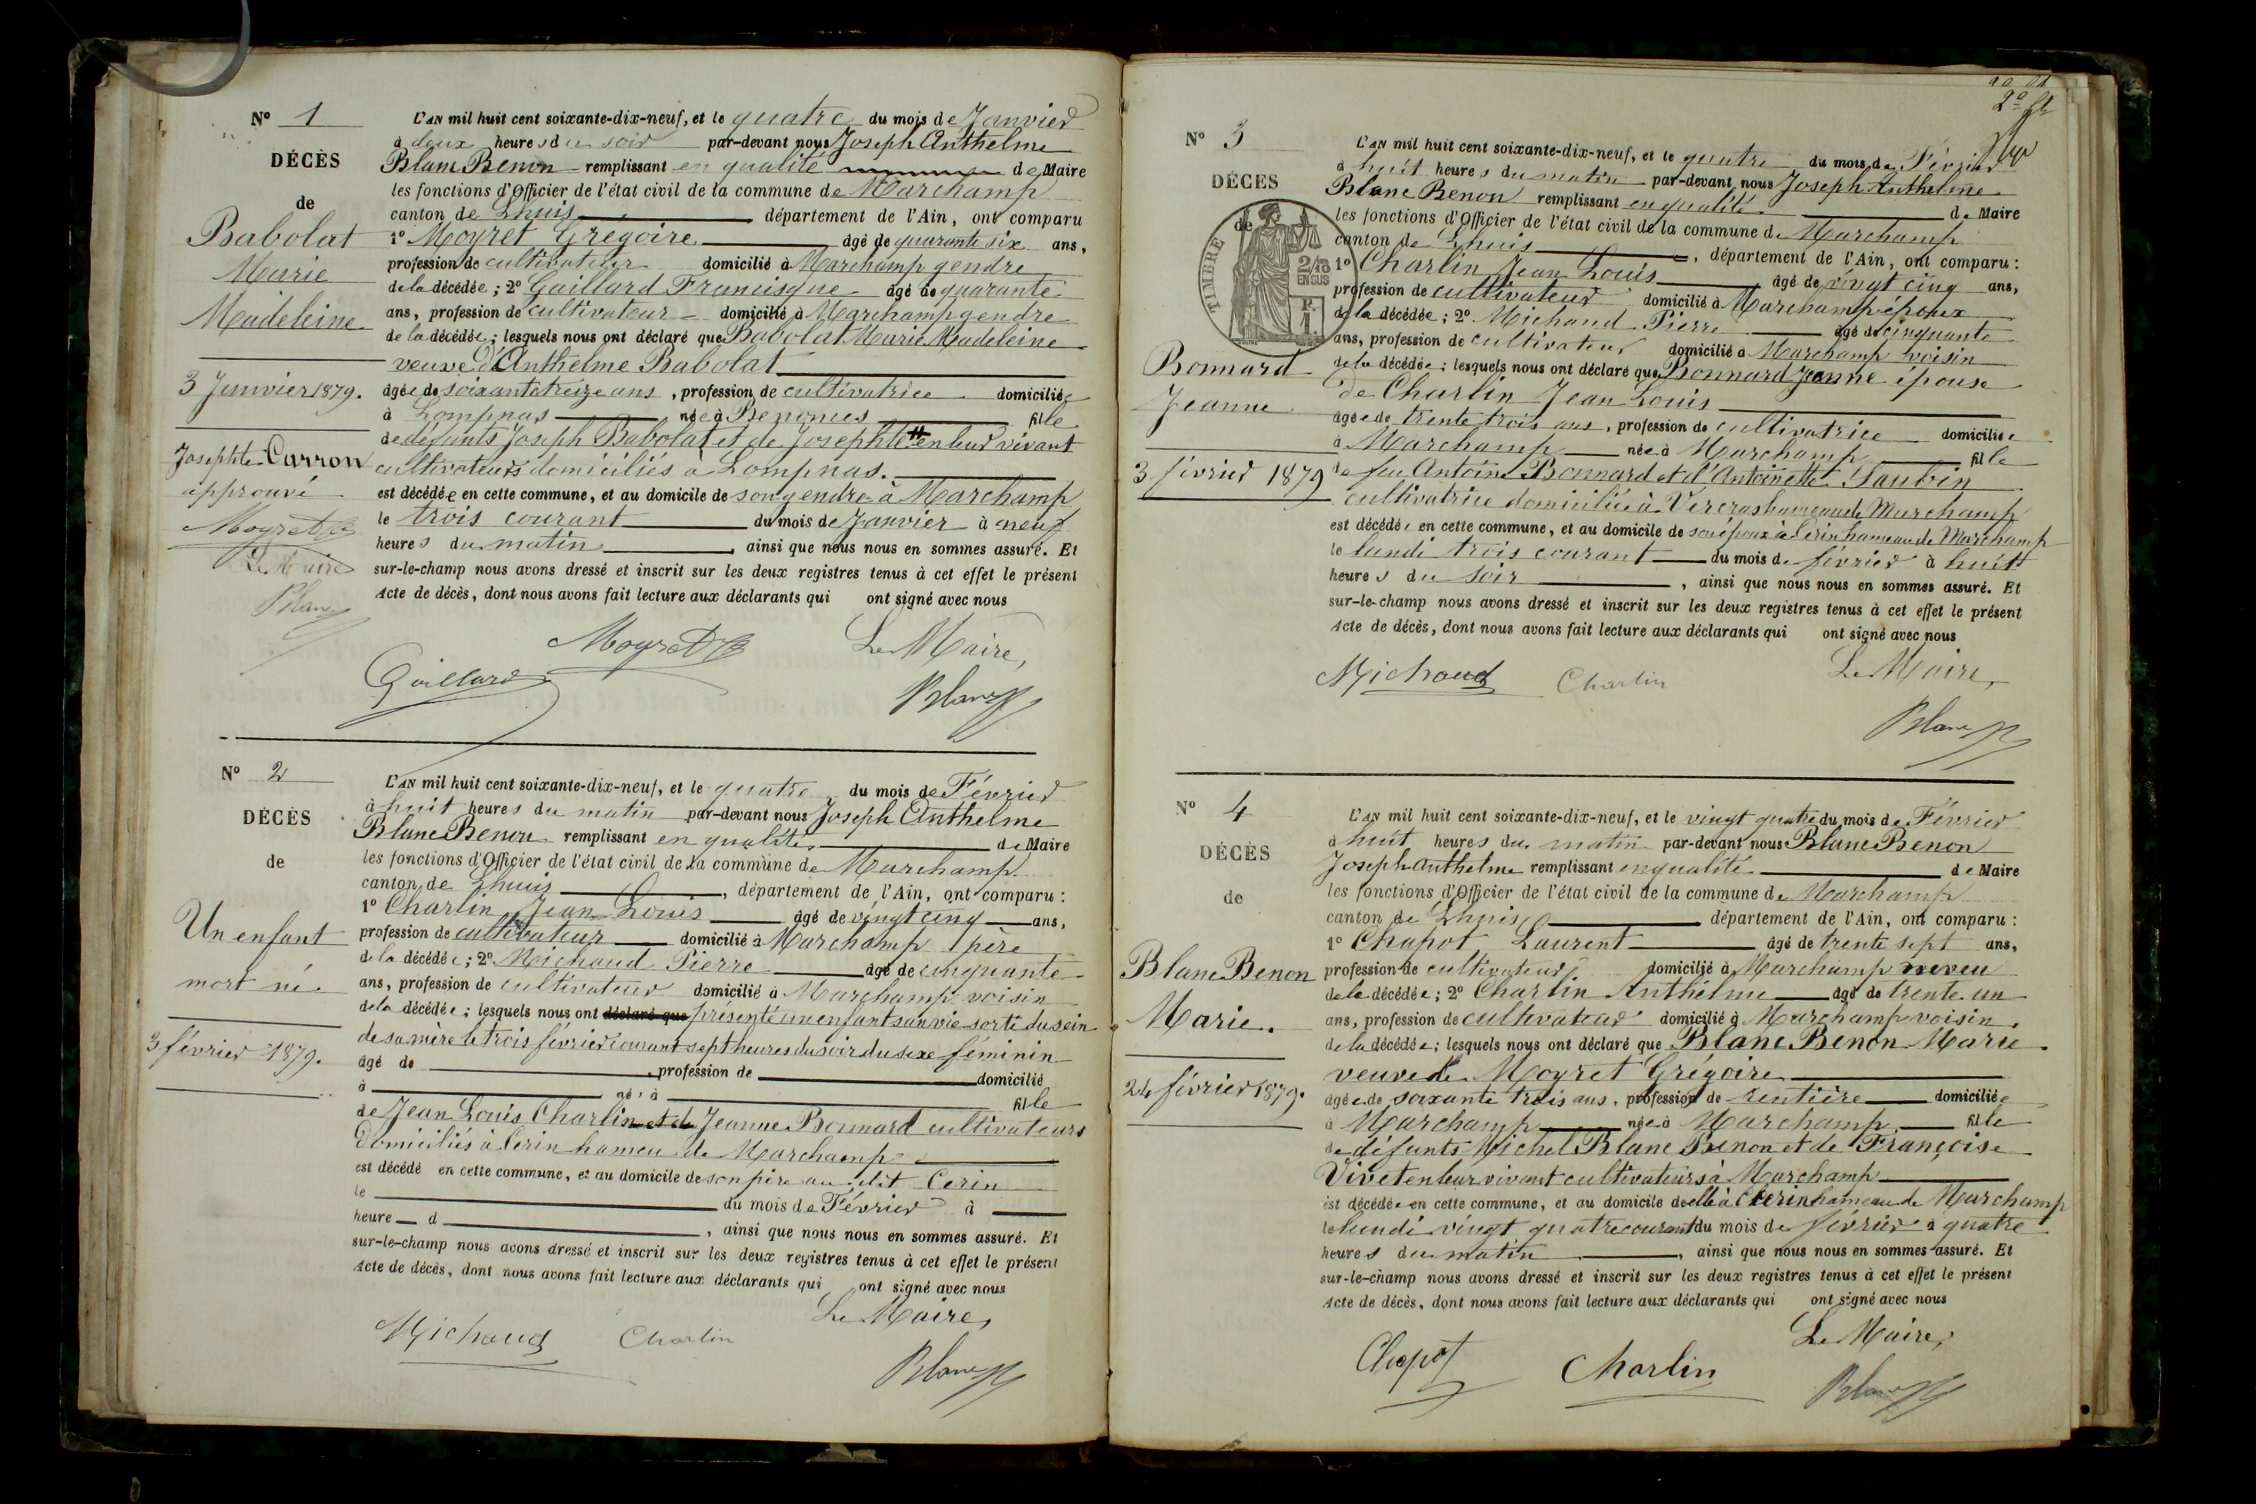 N° 1
DÉCÈS
de
Babolat
Marie
Madeleine
3 Janvier 1879.
Josephte Carron
approuvé
Moyret
Le Maire
Blanc
L'AN mil huit cent soixante-dix-neuf, et le quatre du mois de Janvier
à deux heures du soir par-devant nous Joseph Anthelme
Blanc Benon remplissant en qualité de Maire
les fonctions d'Officier de l'état civil de la commune de Marchamp
canton de Lhuis département de l'Ain, ont comparu
1° Moyret Grégoire âgé de quarante six ans,
profession de cultivateur domicilié à Marchamp gendre
de la décédée ; 2° Gaillard Francisque âgé de quarante
ans, profession de cultivateur domicilié à Marchamp gendre
de la décédée ; lesquels nous ont déclaré que Babolat Marie Madeleine
veuve d'Anthelme Babolat
âgée de soixante treize ans, profession de cultivatrice domiciliée
à Lompnas née à Benonces fille
de défunts Joseph Babolat et de Josephte # en leur vivant
cultivateurs domiciliés à Lompnas.
est décédée en cette commune, et au domicile de son gendre à Marchamp
le trois courant du mois de Janvier à neuf
heures du matin, ainsi que nous nous en sommes assuré. Et
sur-le-champ nous avons dressé et inscrit sur les deux registres tenus à cet effet le présent
Acte de décès, dont nous avons fait lecture aux déclarants qui ont signé avec nous
Moyret Le Maire,
Gaillard Blanc
N° 2
DÉCÈS
de
Un enfant
mort né.
3 février 1879.
L'AN mil huit cent soixante-dix-neuf, et le quatre du mois de Février
à huit heures du matin par-devant nous Joseph Anthelme
Blanc Benon remplissant en qualité de Maire
les fonctions d'Officier de l'état civil de la commune de Marchamp
canton de Lhuis, département de l'Ain, ont comparu :
1° Charlin Jean Louis âgé de vingt cinq ans,
profession de cultivateur domicilié à Marchamp père
de la décédée ; 2° Michaud Pierre âgé de cinquante
ans, profession de cultivateur domicilié à Marchamp voisin
de la décédée ; lesquels nous ont déclaré que présenté un enfant sans vie sorti du sein
de sa mère le trois février courant sept heures du soir du sexe féminin
âgé de, profession de domicilié
à né à fille
de Jean Louis Charlin et de Jeanne Bonnard cultivateurs
domiciliés à Cerin hameau de Marchamp
est décédé en cette commune, et au domicile de son père au dit Cerin
le du mois de Février à
heure d, ainsi que nous nous en sommes assuré. Et
sur-le-champ nous avons dressé et inscrit sur les deux registres tenus à cet effet le présent
Acte de décès, dont nous avons fait lecture aux déclarants qui ont signé avec nous
Le Maire,
Michaud Charlin
Blanc
2e
N° 3
DÉCÈS
de
TIMBRE
2/10
EN SUS
Bonnard
Jeanne
3 février 1879
L'AN mil huit cent soixante-dix-neuf, et le quatre du mois de Février
à huit heures du matin par-devant nous Joseph Anthelme
Blanc Benon remplissant en qualité de Maire
les fonctions d'Officier de l'état civil de la commune de Marchamp
canton de Lhuis, département de l'Ain, ont comparu :
1° Charlin Jean Louis âgé de vingt cinq ans,
profession de cultivateur domicilié à Marchamp époux
de la décédée ; 2° Michaud Pierre âgé de cinquante
ans, profession de cultivateur domicilié à Marchamp voisin
de la décédée ; lesquels nous ont déclaré que Bonnard Jeanne épouse
de Charlin Jean Louis
âgée de trente trois ans, profession de cultivatrice domiciliée
à Marchamp née à Marchamp fille
de feu Antoine Bonnard et d'Antoinette Saubin
cultivatrice domiciliée à Vercras hameau de Marchamp
est décédée en cette commune, et au domicile de son époux à Cerin hameau de Marchamp
le lundi trois courant du mois de février à huit
heures du soir, ainsi que nous nous en sommes assuré. Et
sur-le-champ nous avons dressé et inscrit sur les deux registres tenus à cet effet le présent
Acte de décès, dont nous avons fait lecture aux déclarants qui ont signé avec nous
Michaud Charlin Le Maire,
Blanc
N° 4
DÉCÈS
de
Blanc Benon
Marie.
24 février 1879.
L'AN mil huit cent soixante-dix-neuf, et le vingt quatre du mois de Février
à huit heures du matin par-devant nous Blanc Benon
Joseph Anthelme remplissant en qualité de Maire
les fonctions d'Officier de l'état civil de la commune de Marchamp
canton de Lhuis département de l'Ain, ont comparu :
1° Chapot Laurent âgé de trente sept ans,
profession de cultivateur domicilié à Marchamp neveu
de la décédée ; 2° Charlin Anthelme âgé de trente un
ans, profession de cultivateur domicilié à Marchamp voisin.
de la décédée ; lesquels nous ont déclaré que Blanc Benon Marie
veuve de Moyret Grégoire
âgée de soixante trois ans, profession de rentière domiciliée
à Marchamp née à Marchamp fille
de défunts Michel Blanc Benon et de Françoise
Vivet en leur vivant cultivateurs à Marchamp
est décédée en cette commune, et au domicile d'elle à Cerin hameau de Marchamp
le lundi vingt quatre courant du mois de février à quatre
heures du matin, ainsi que nous nous en sommes assuré. Et
sur-le-champ nous avons dressé et inscrit sur les deux registres tenus à cet effet le présent
Acte de décès, dont nous avons fait lecture aux déclarants qui ont signé avec nous
Le Maire,
Chapot Charlin
Blanc